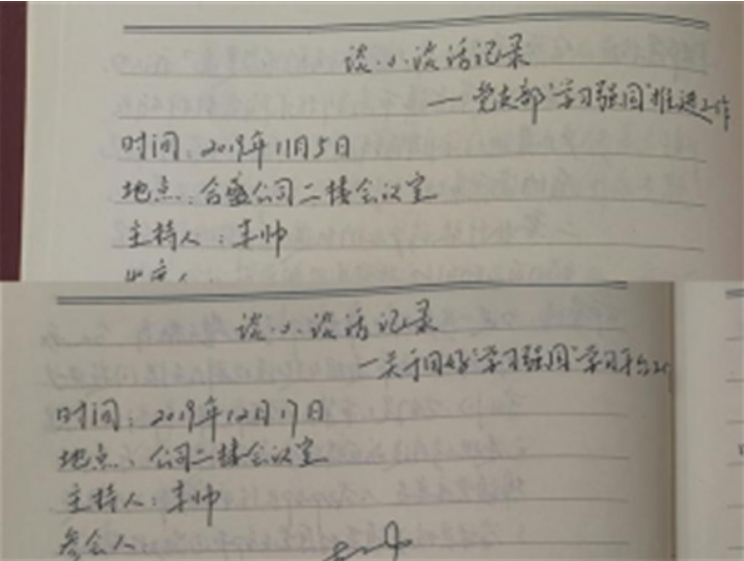 谈心谈话记录
—党支部"学习强国"推进工作
时间：2019年11月5日
地点：合盛公司二楼会议室
主持人：李帅
谈心谈话记录
—关于用好"学习强国"学习平台
时间：2019年12月17日
地点：公司二楼会议室
主持人：李帅
参会人